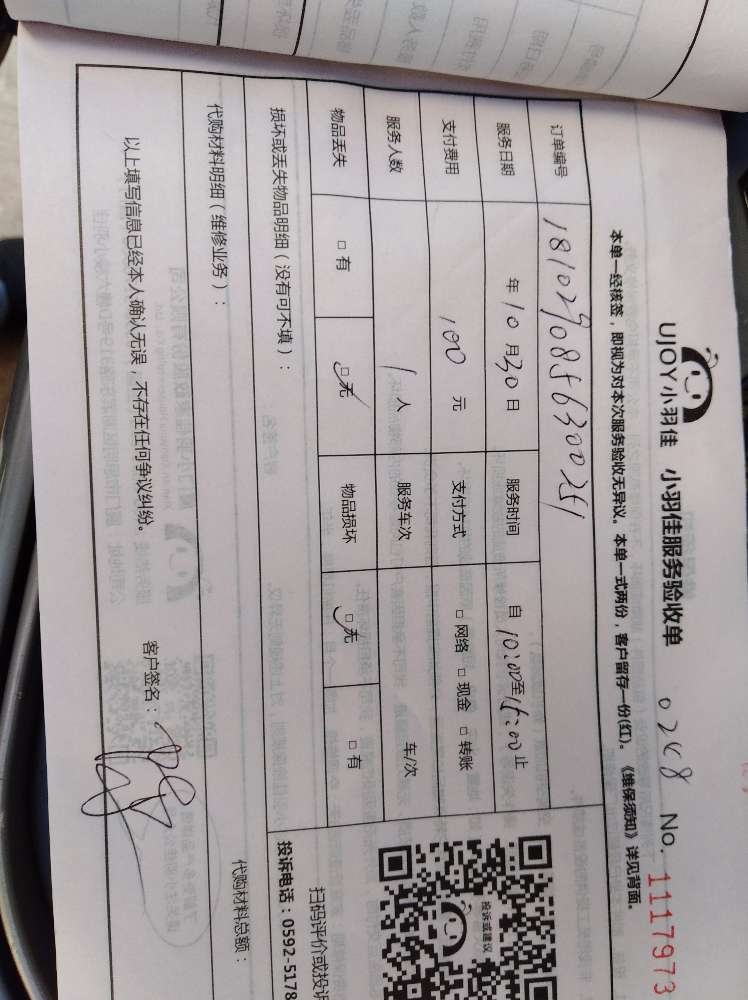 UJOY小羽佳 小羽佳服务验收单 0268 No. 1117973
本单一经核签，即视为对本次服务验收无异议。本单一式两份，客户留存一份(红)。《维保须知》详见背面。
订单编号 1810290856300251
服务日期 年 10 月 30 日 服务时间 自 10:00至15:00止
支付费用 100 元 支付方式 □ 网络 □ 现金 □ 转账
服务人数 1 人 服务车次 车/次
物品丢失 □ 有 □ 无 物品损坏 □ 无 □ 有
损坏或丢失物品明细（没有可不填）：
代购材料明细（维修业务）：
代购材料总额：
以上填写信息已经本人确认无误，不存在任何争议纠纷。
客户签名：
投诉或建议
扫码评价或投诉
投诉电话：0592-5178